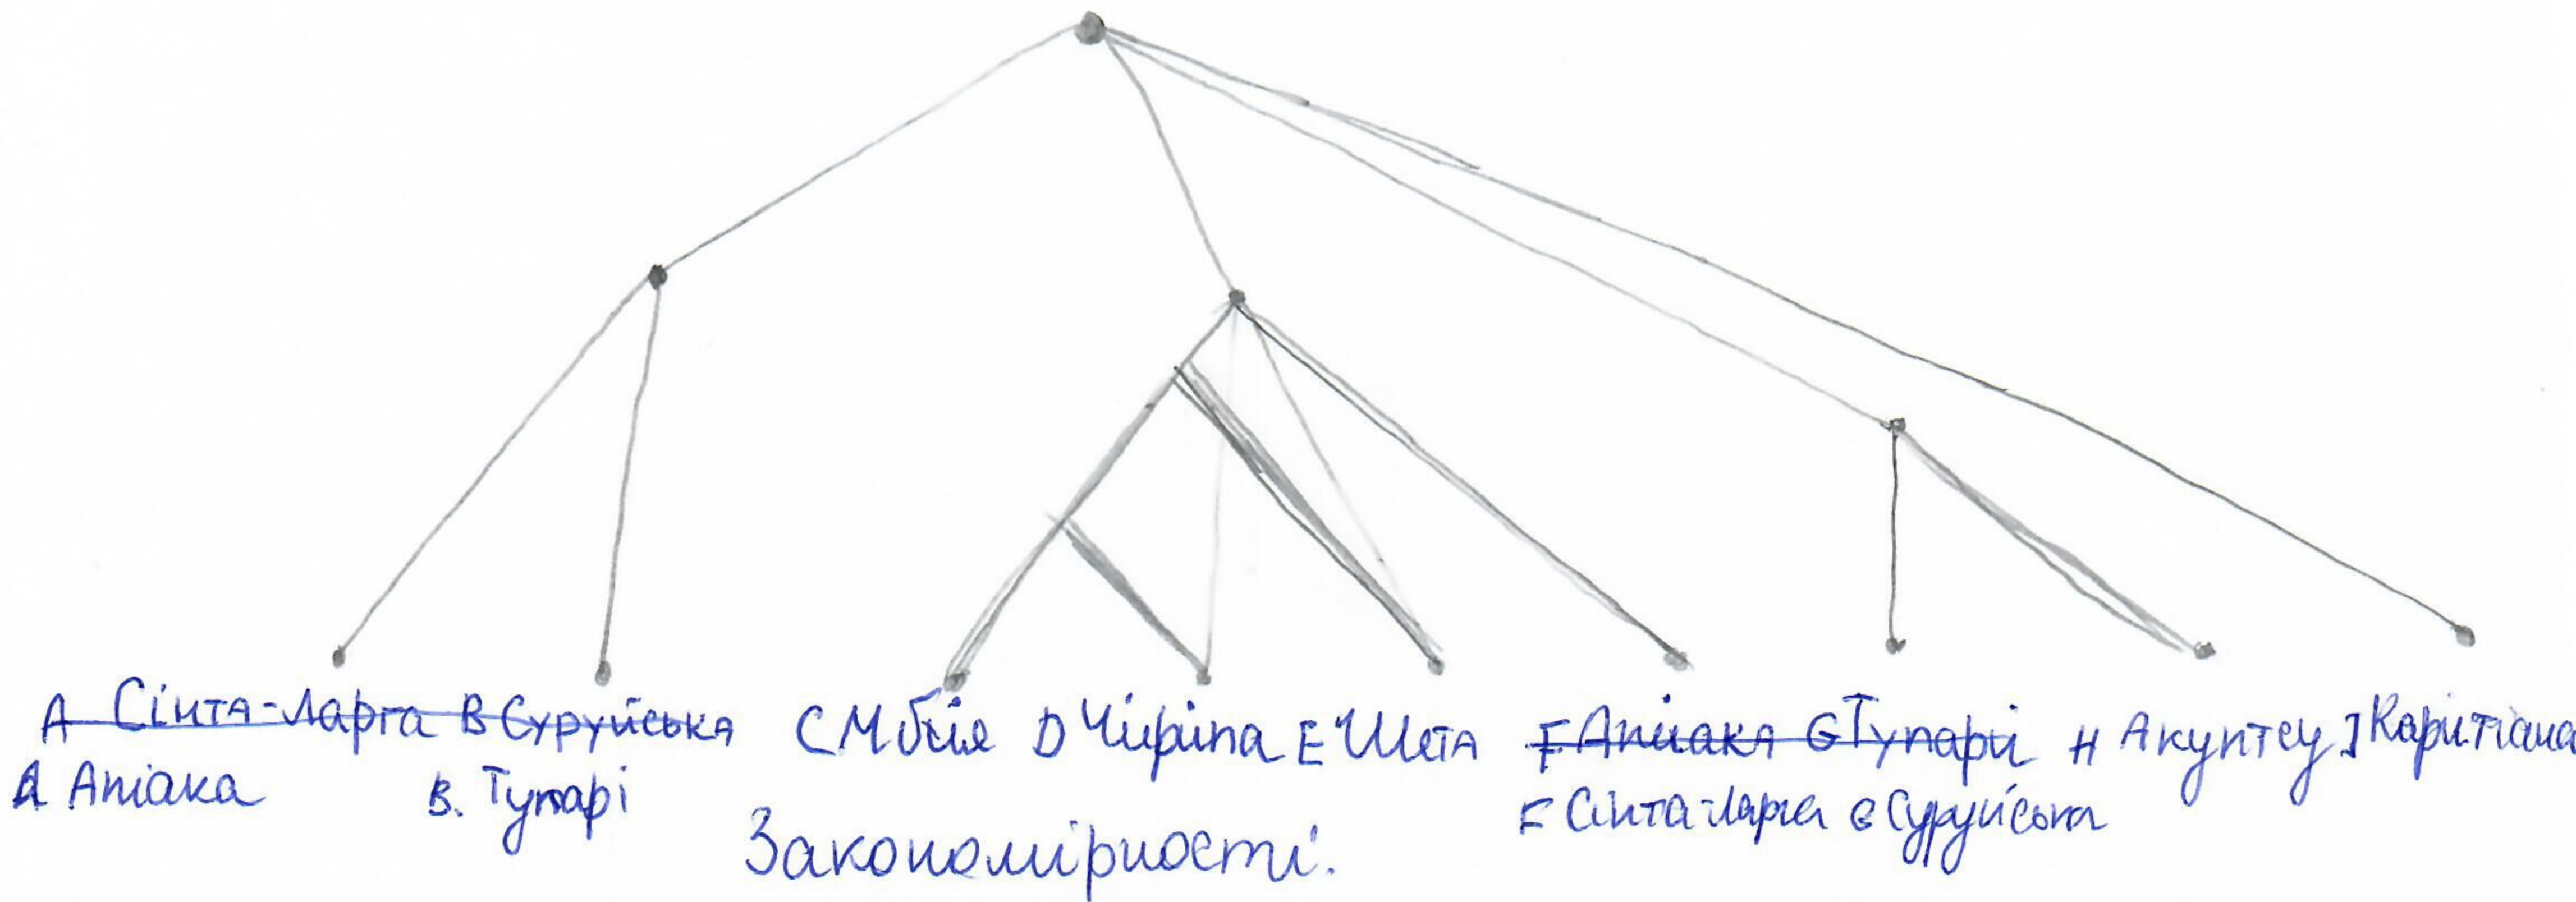 A Сінта-Ларга B Суруйська C Мбія D Чіріпа E Шета F Апіака G Тупарі H Акунтсу J Карітіана
A Апіака B. Тупарі F Сінта-Ларга G Суруйська
Закономірності.